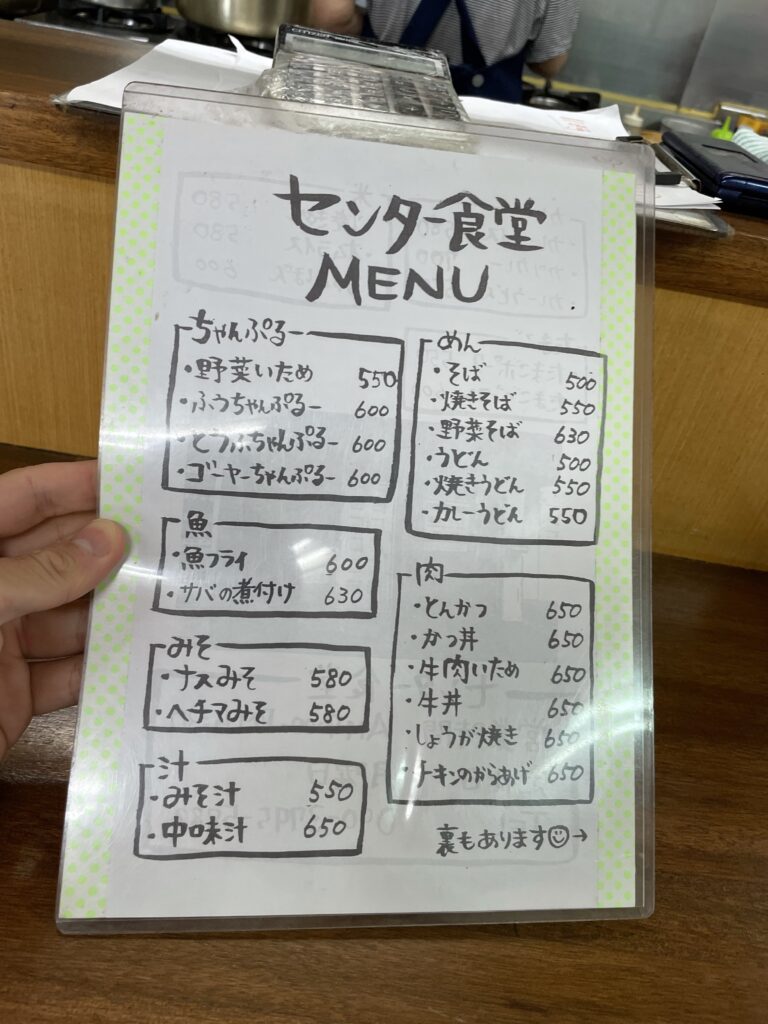 センター食堂
MENU
ちゃんぷるー
・野菜いため 550
・ふうちゃんぷるー 600
・とうふちゃんぷるー 600
・ゴーヤーちゃんぷるー 600
魚
・魚フライ 600
・サバの煮付け 630
みそ
・ナスみそ 580
・ヘチマみそ 580
汁
・みそ汁 550
・中味汁 650
めん
・そば 500
・焼きそば 550
・野菜そば 630
・うどん 500
・焼きうどん 550
・カレーうどん 550
肉
・とんかつ 650
・かつ丼 650
・牛肉いため 650
・牛丼 650
・しょうが焼き 650
・チキンのからあげ 650
裏もあります☺→
CITIZEN